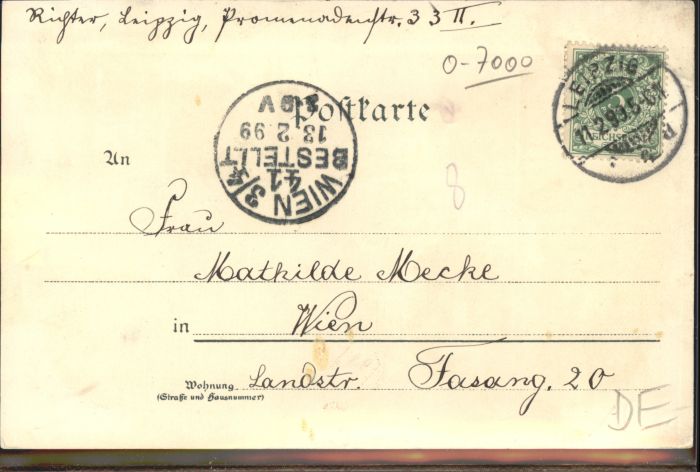 Richter, Leipzig, Promenadenstr. 33 II.
O-7000
LEIPZIG
11.2.99.5-6N
Postkarte
WIEN 3/4
41
BESTELLT
13.2.99
An
8
Frau
Mathilde Mecke
in Wien
Wohnung Landstr. Fasang. 20
(Straße und Hausnummer)
DE-